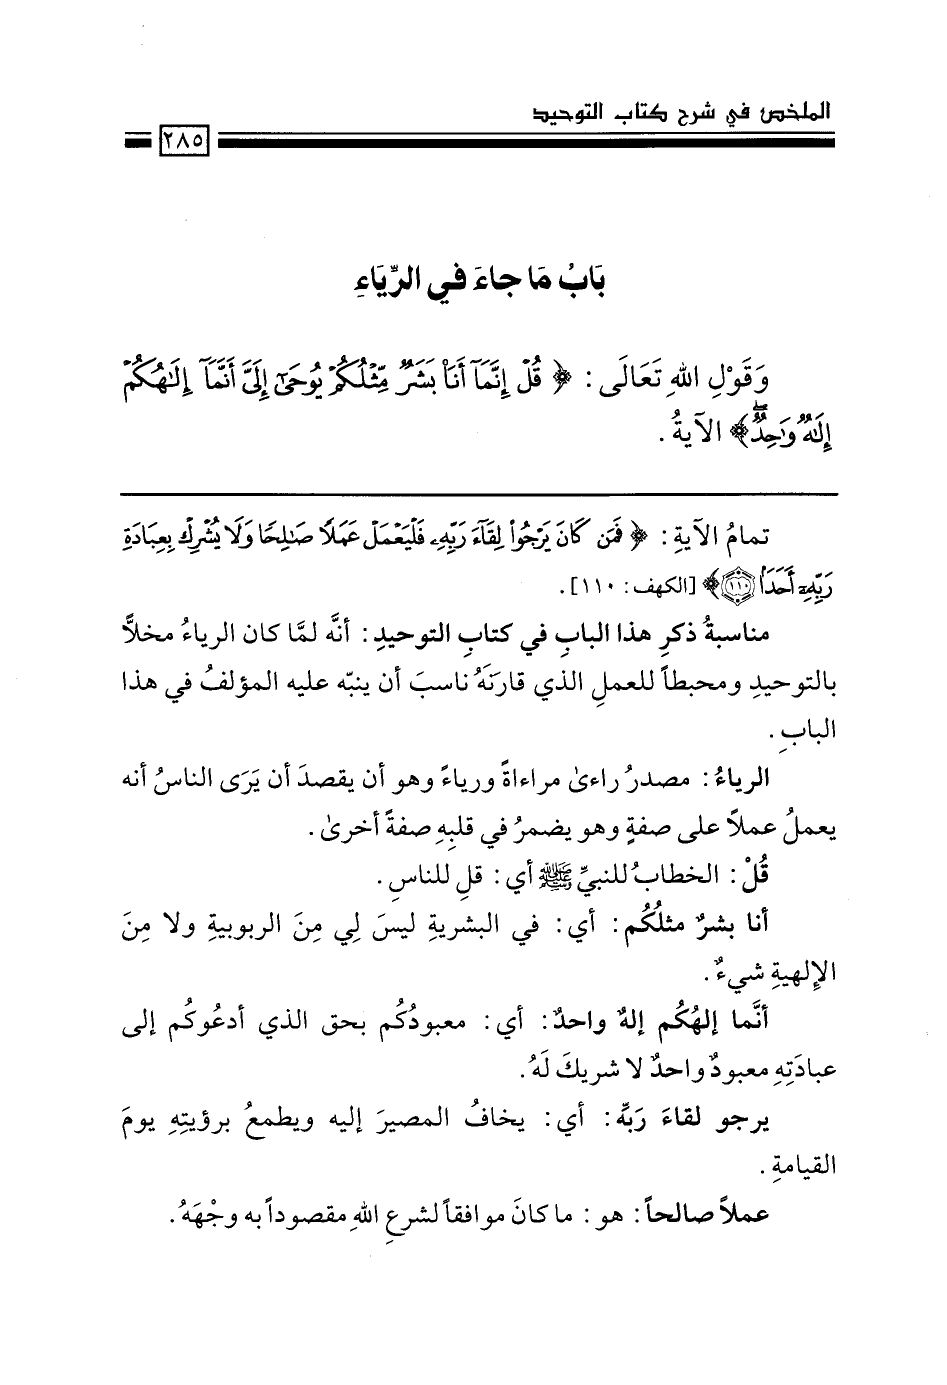 الملخص في شرح كتاب التوحيد
٢٨٥
بَابُ مَا جاءَ في الرِّيَاءِ
وَقَوْلِ اللهِ تَعَالَى : ﴿ قُلْ إِنَّمَآ أَنَا۠ بَشَرٌ مِّثْلُكُمْ يُوحَىٰٓ إِلَىَّ أَنَّمَآ إِلَٰهُكُمْ
إِلَٰهٌ وَٰحِدٌ ۖ﴾ الآيةُ .
تمامُ الآيةِ : ﴿ فَمَن كَانَ يَرْجُوا۟ لِقَآءَ رَبِّهِۦ فَلْيَعْمَلْ عَمَلًا صَٰلِحًا وَلَا يُشْرِكْ بِعِبَادَةِ
رَبِّهِۦٓ أَحَدَۢا ١١٠﴾ [الكهف : ١١٠] .
مناسبةُ ذكرِ هذا البابِ في كتابِ التوحيدِ : أنَّه لمَّا كان الرياءُ مخلاًّ
بالتوحيدِ ومحبطاً للعملِ الذي قارنَهُ ناسبَ أن ينبّه عليه المؤلفُ في هذا
البابِ .
الرياءُ : مصدرُ راءىٰ مراءاةً ورياءً وهو أن يقصدَ أن يَرَى الناسُ أنه
يعملُ عملاً على صفةٍ وهو يضمرُ في قلبِهِ صفةً أخرىٰ .
قُلْ : الخطابُ للنبيِّ ﷺ أي : قلِ للناسِ .
أنا بشرٌ مثلُكُم : أي : في البشريةِ ليسَ لِي مِنَ الربوبيةِ ولا مِنَ
الإِلهيةِ شيءٌ .
أنَّما إلهُكُم إلهٌ واحدٌ : أي : معبودُكُم بحق الذي أدعُوكُم إلى
عبادَتِهِ معبودٌ واحدٌ لا شريكَ لَهُ .
يرجو لقاءَ رَبِّه : أي : يخافُ المصيرَ إليه ويطمعُ برؤيتِهِ يومَ
القيامةِ .
عملاً صالحاً : هو : ما كانَ موافقاً لشرعِ اللهِ مقصوداً به وجْهَهُ .